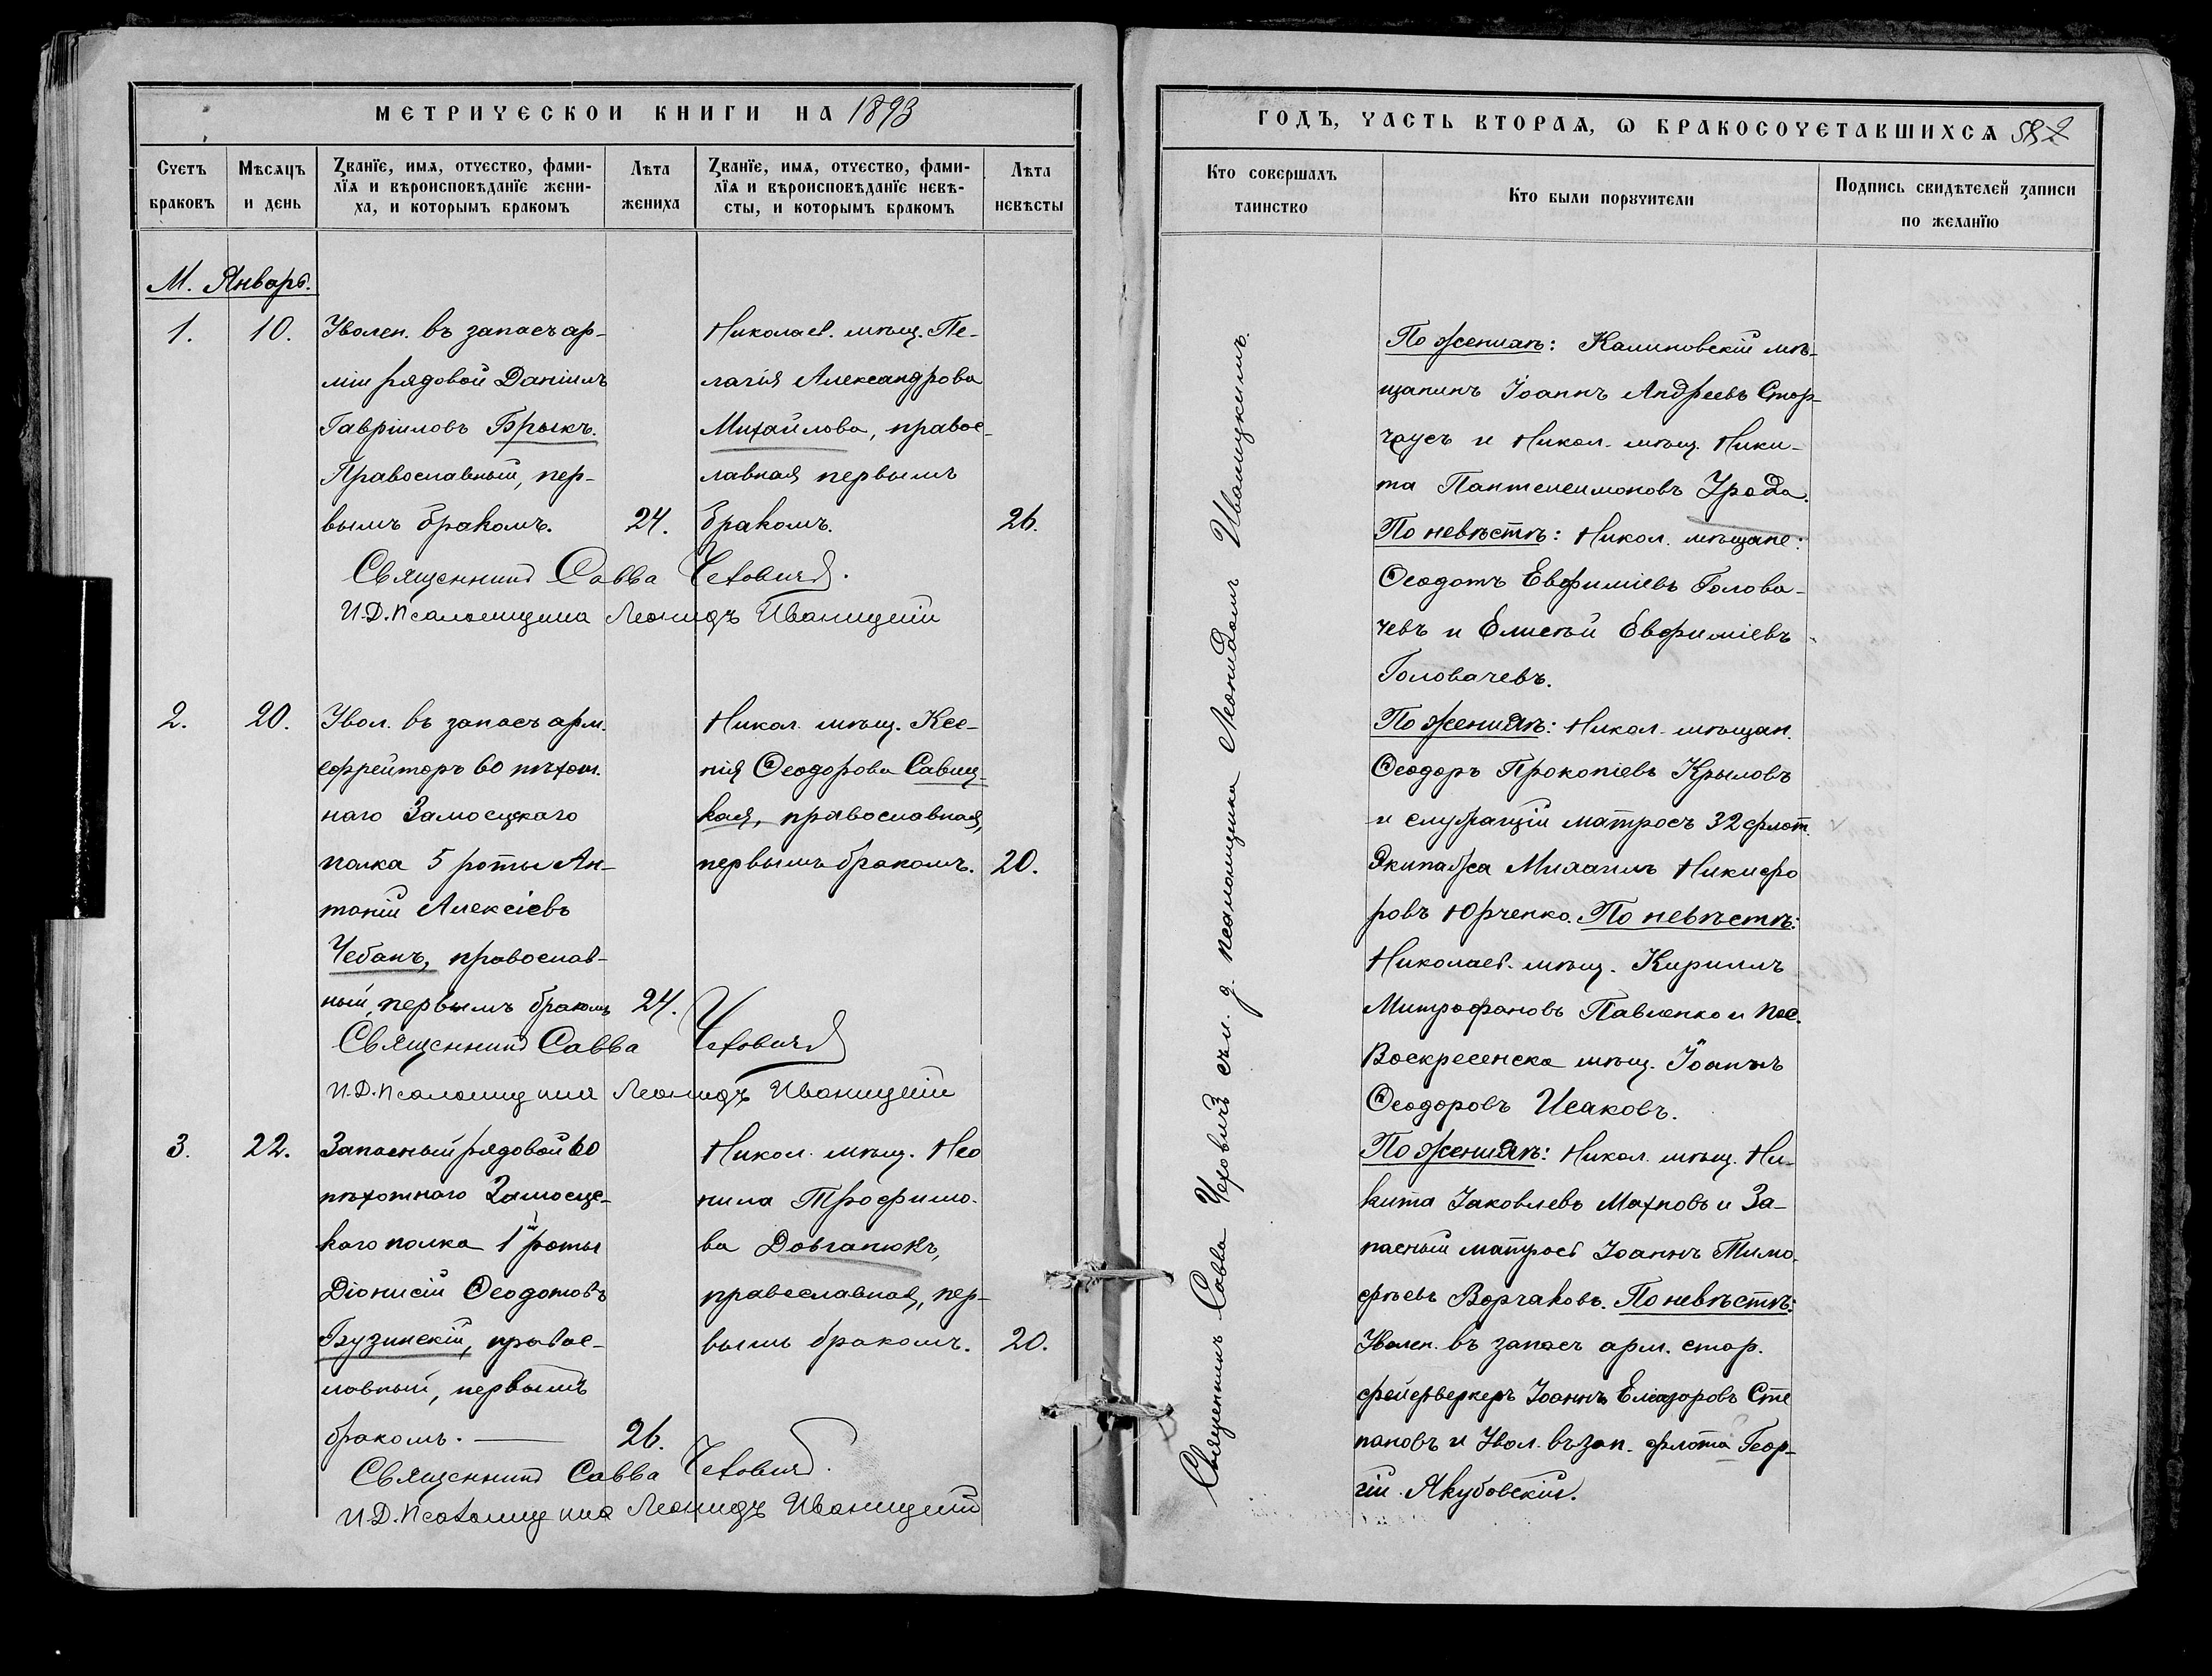 МЕТРИЧЕСКОЙ КНИГИ НА 1893
Счетъ браковъ
Мѣсяцъ и день
Званїе, имѧ, отчество, фами-
лїѧ и вѣроисповѣданїе жени-
ха, и которымъ бракомъ
Лѣта жениха
Званїе, имѧ, отчество, фами-
лїѧ и вѣроисповѣданїе невѣ-
сты, и которымъ бракомъ
Лѣта невѣсты
М. Январь.
1.
10.
Уволен. въ запасъ ар-
міи рядовой Даніилъ
Гавріиловъ Брыкъ.
Православный, пер-
вымъ бракомъ.
24.
Николаев. мѣщ. Пе-
лагія Александрова
Михайлова, правос-
лавная первымъ
бракомъ.
26.
Священникъ Савва Чеховичъ.
И.Д. Псаломщика Леонидъ Иваницкій
2.
20.
Увол. въ запасъ арм.
ефрейторъ 60 пѣхот.
наго Замосцкаго
полка 5 роты Ан-
тоній Алексіевъ
Чебанъ, православ-
ный, первымъ бракомъ
24.
Никол. мѣщ. Ксе-
нія Ѳеодорова Савиц-
кая, православная,
первымъ бракомъ.
20.
Священникъ Савва Чеховичъ
И.Д. Псаломщика Леонидъ Иваницкій
3.
22.
Запасный рядовой 60
пѣхотнаго Замосцс-
каго полка 1й роты
Діонисій Ѳеодотовъ
Бузинскій, правос-
лавный, первымъ
бракомъ.
26.
Никол. мѣщ. Нео
нила Трофимо-
ва Довганюкъ,
православная, пер-
вымъ бракомъ.
20.
Священникъ Савва Чеховичъ.
И.Д. Псаломщика Леонидъ Иваницкій
ГОДЪ, ЧАСТЬ ВТОРАѦ, Ѡ БРАКОСОЧЕТАВШИХСѦ
Кто совершалъ
таинство
Кто были порꙋчители
Подпись свидѣтелей записи
по желанїю
Священникъ Савва Чеховичъ съ и. д. псаломщика Леонидомъ Иваницкимъ.
По женихѣ: Калиновскій мѣ-
щанинъ Іоаннъ Андреевъ Стор-
чаусъ и Никол. мѣщ. Ники-
та Пантелеимоновъ Урода.
По невѣстѣ: Никол. мѣщане:
Ѳеодотъ Евфиміевъ Голова-
чевъ и Елисей Евфиміевъ
Головачевъ.
По женихѣ: Никол. мѣщан.
Ѳеодоръ Прокопіевъ Крыловъ
и служащій матросъ 32 флот.
Экипажа Михаилъ Никифо
ровъ Юрченко. По невѣстѣ:
Николаев. мѣщ. Кириллъ
Митрофановъ Павленко и пос.
Воскресенска мѣщ. Іоаннъ
Ѳеодоровъ Исаковъ.
По женихѣ: Никол. мѣщ. Ни-
кита Іаковлевъ Махновъ и За-
пасный матросъ Іоаннъ Тимо-
фѣевъ Ворчаковъ. По невѣстѣ:
Уволен. въ запасъ арм. стар.
фейерверкеръ Іоаннъ Елеазаровъ Сте
пановъ и Увол. въ зап. флота Геор-
гій Якубовскій.